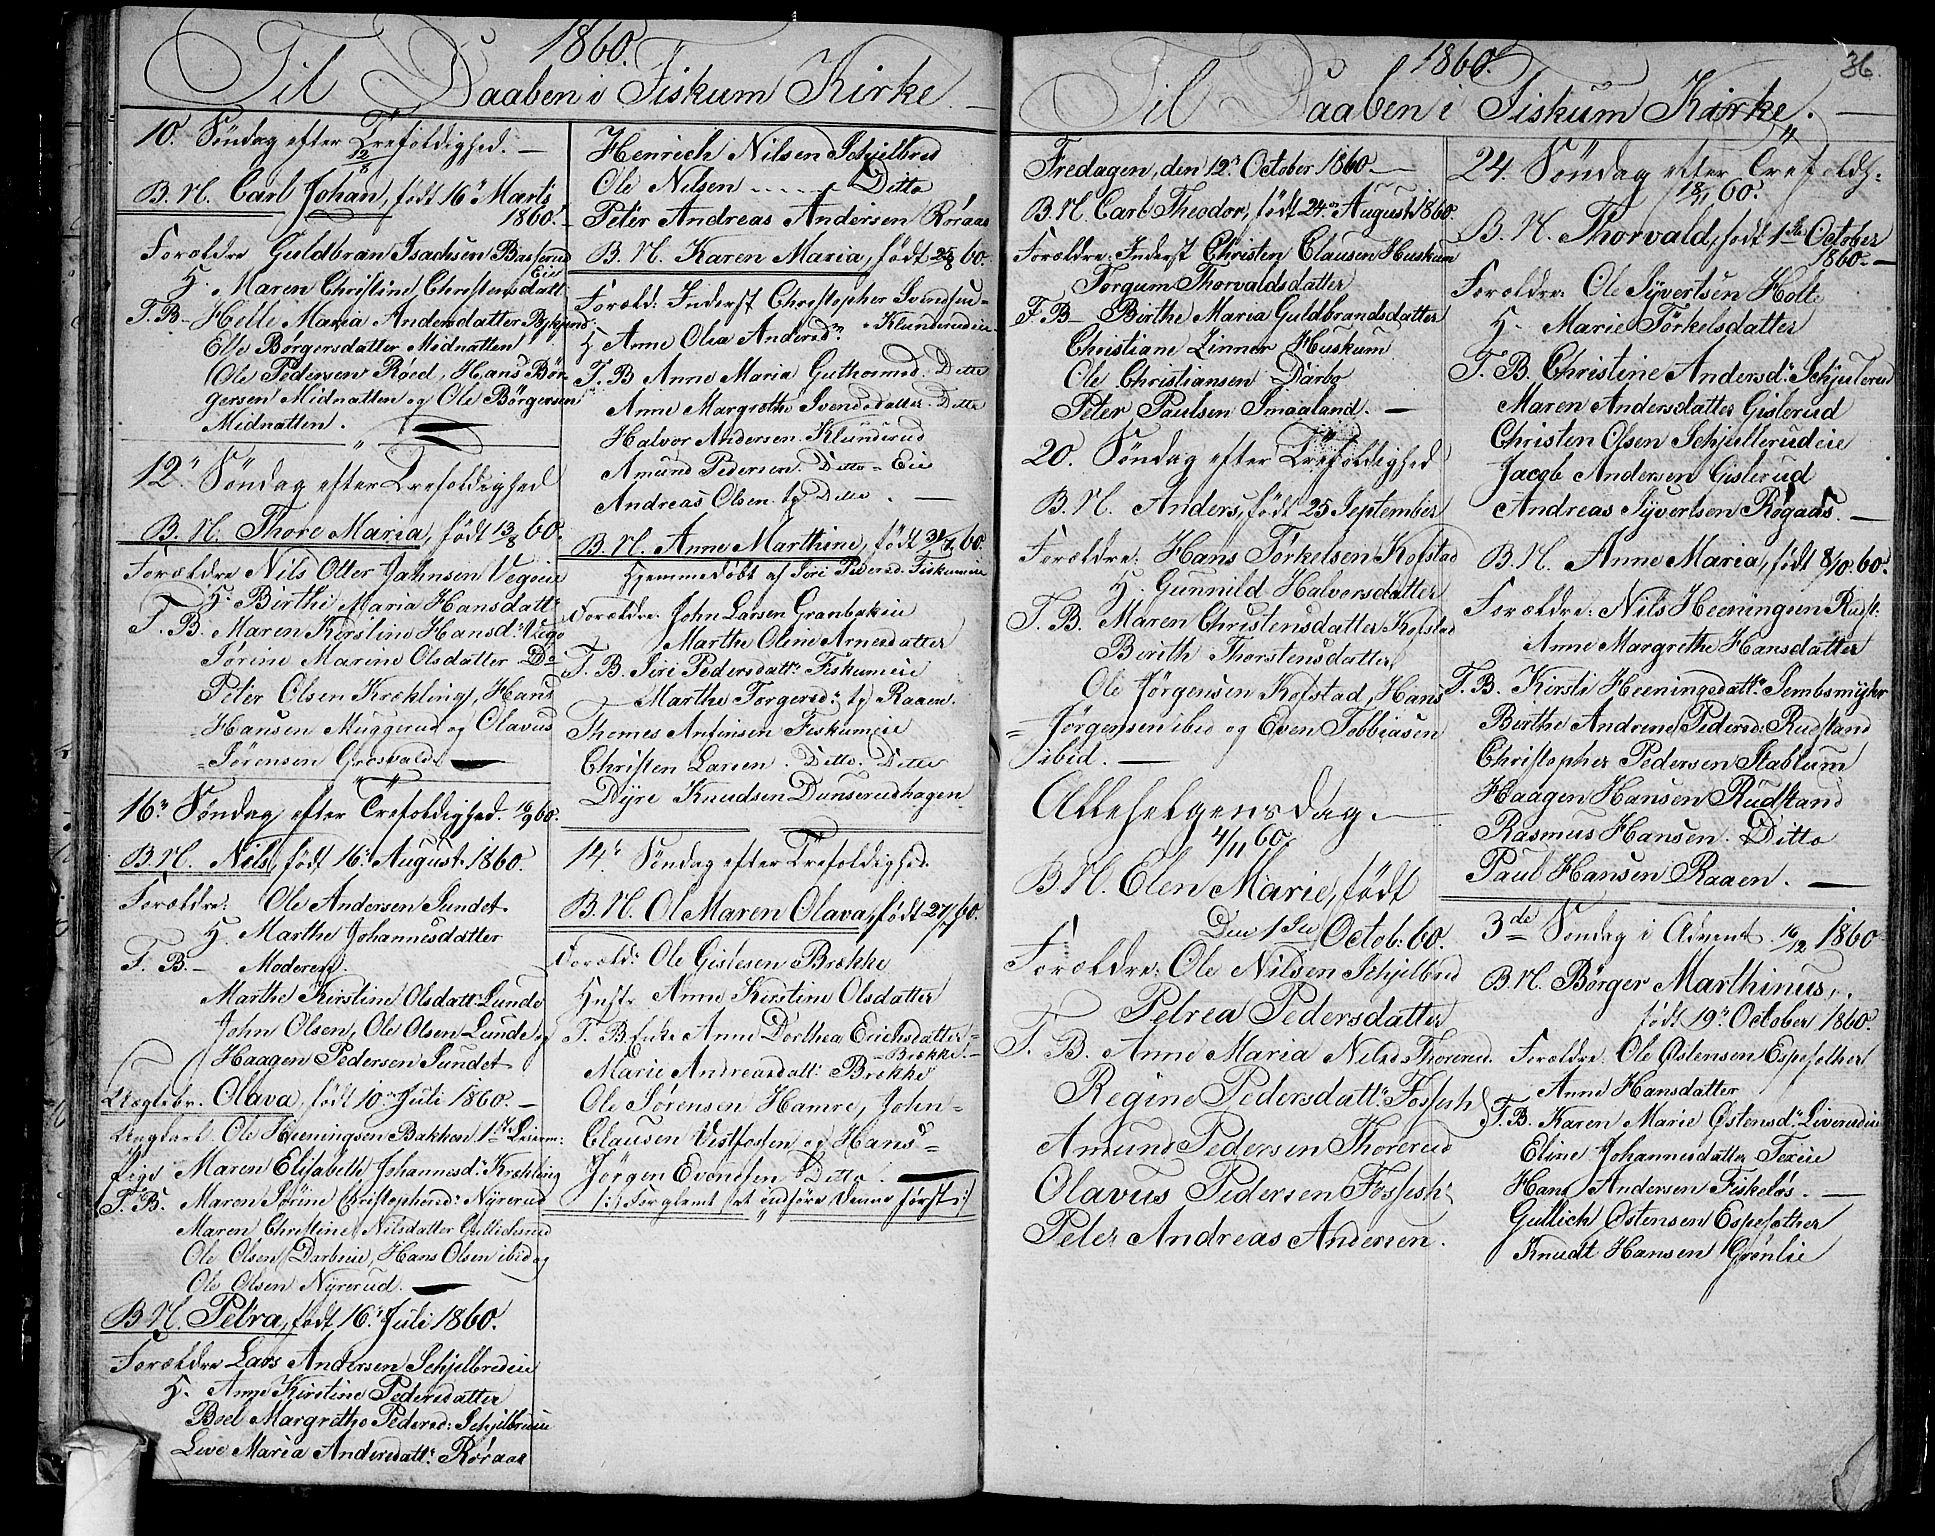 1860.
Til Daaben i Fiskum Kirke. —
10. Søndag efter Trefoldighed. —
12/8
B. N. Carl Johan, født 16de Marts
1860. —
Forældre Guldbran Isachsen Basserud
Eie
H. Maren Christine Christensdatt:
F. B. Helle Maria Andersdatter
Elle Børgersdatter Midnatten
Ole Pedersen Røed, Hans Bør-
gersen Midnatten og Ole Børgersen
Midnatten. —
12te Søndag efter Trefoldighed
B. N. Thore Maria, født 13/8 60.
Forældre Nils Otter Jahnsen Vegoeie
H. Birthe Maria Hansdatt:
F. B. Maren Kirstine Hansd: Vego
Sørine Marine Olsdatter Do
Peter Olsen Krekling, Hans
Hansen Muggerud og Olavus
Sørensen Grosvold. —
16de Søndag efter Trefoldighed. 16/9 60.
B. N. Nils, født 16de August 1860.
Forældre: Ole Andersen Sundet
H. Marthe Johannesdatter
F. B. — Moderen.
Marthe Kirstine Olsdatt: Lunde
John Olsen, Ole Olsen Lunde og
Haagen Pedersen Sundet
Uægtebr. Olava, født 10de Juli 1860. —
Ungkarl Ole Heeningsen Bakken 1ste Leierm:
Pige Maren Elisabeth Johannesd: Krekling
F. B. Maren Sørine Christophersd: Nyrerud
Maren Christine Nilsdatter Gullichsrud
Ole Olsen Darboeie, Hans Olsen ibid og
Ole Olsen Nyrerud. —
B. N. Petra, født 16de Juli 1860.
Forældre Lars Andersen Schjelbredeie
H. Anne Kirstine Pedersdatter
Boel Margrethe Pedersd: Schjelbredeie
Live Maria Andersdatt: Røraas
Henrich Nilsen Schjelbred
Ole Nilsen ------ Ditto
Peter Andreas Andersen Røraas
B. N. Karen Maria, født 25/8 60.
Foræld: Inderst Christopher Svendsen-
H Anne Olea Andersdr. Klunderudeie
F. B Anne Maria Guthormsd. Ditto
Anne Margrethe Svendsdatter. Ditto
Halvor Andersen Klunderud
Amund Pedersen. Ditto-Eie
Andreas Olsen Ditto. —
B. N. Anne Marthine, født 31/7 60.
Hjemmedøbt af Siri Pedersd: Fiskumeie
Forældre: John Larsen Granbakeie
Marthe Oline Arnesdatter
F. B. Siri Pedersdatt: Fiskumeie
Marthe Torgersd: Raaen.
Thomes Anfinsen Fiskumeie
Christen Larsen. Ditto. Ditto
Dyre Knudsen Dunserudhagen
14de Søndag efter Trefoldighed.
B. N. Ole Maren Olava, født 27/7 60.
Foræld: Ole Gislesen Brække
Hustr Anne Kirstine Olsdatter
F. B. Enke Anne Dorthea Erichsdatter-
-Brække.-
Marie Andreasdatt: Brække
Ole Sørensen Hamre, John-
Clausen Vestfossen og Hans-
Jørgen Evensen Ditto. —
/:/ Forglemt at indføre denne først :/
1860.
36.
Til Daaben i Fiskum Kirke. —
Fredagen, den 12te October 1860 —
B. N. Carl Theodor, født 24de August 1860.
Forældre: Inderst Christen Clausen Huskum
Torgum Thorvaldsdatter
F. B — Birthe Maria Guldbrandsdatter
Christiane Linner Huskum
Ole Christiansen Darbo
Peter Paulsen Smaaland. —
20. Søndag efter Trefoldighed
B. N. Anders, født 25 September
Forældre: Hans Tørkelsen Kofstad
H. Gunnild Halvorsdatter
F. B. Maren Christensdatter Kofstad
Berith Thorstensdatter
Ole Jørgensen Kofstad, Hans
Jørgensen ibid og Even Tobbiasen
ibid. —
Allehelgensdag. —
4/11 60.
B N. Elen Marie, født
Den 1ste Octob: 60.
Forældre: Ole Nilsen Schjelbred
Petrea Pedersdatter
F. B. Anne Maria Nilsd Thorerud
Regine Pedersdatt: Fossesh
Amund Pedersen Thorerud
Olavus Pedersen Fossesh
Peter Andreas Andersen.
24. Søndag efter Trefoldh:
18/11 60.
B. N. Thorvald, født 1ste October
1860. —
Forældre: Ole Syvertsen Holte
H. Marie Tørkelsdatter
F. B. Christine Andersd: Schjulerud
Maren Andersdatter Gislerud
Christen Olsen Schjullerudeie
Jacob Andersen Gislerud
Andreas Syvertsen Røgaas. —
B. N. Anne Maria, født 8/10. 60.
Forældre: Nils Heeningsen Rust:
Anne Margrethe Hansdatter
F. B. Kirsti Heeningsdatt: Sembsmyhr
Birthe Andrene Pedersd: Rudstand
Christopher Pedersen Stablum
Haagen Hansen Rudstand
Rasmus Hansen. Ditto
Paul Hansen Raaen. —
3de Søndag i Advent 16/12 1860
B. N. Børger Marthinus,
født 19de October 1860.
Forældre Ole Østensen Espesæther
Anne Hansdatter
F. B. Karen Marie Østensd: Liverudeie
Eline Johannesdatter Texeie
Hans Andersen Fiskeløs. —
Gullich Østensen Espesæther
Knudt Hansen Grønlie